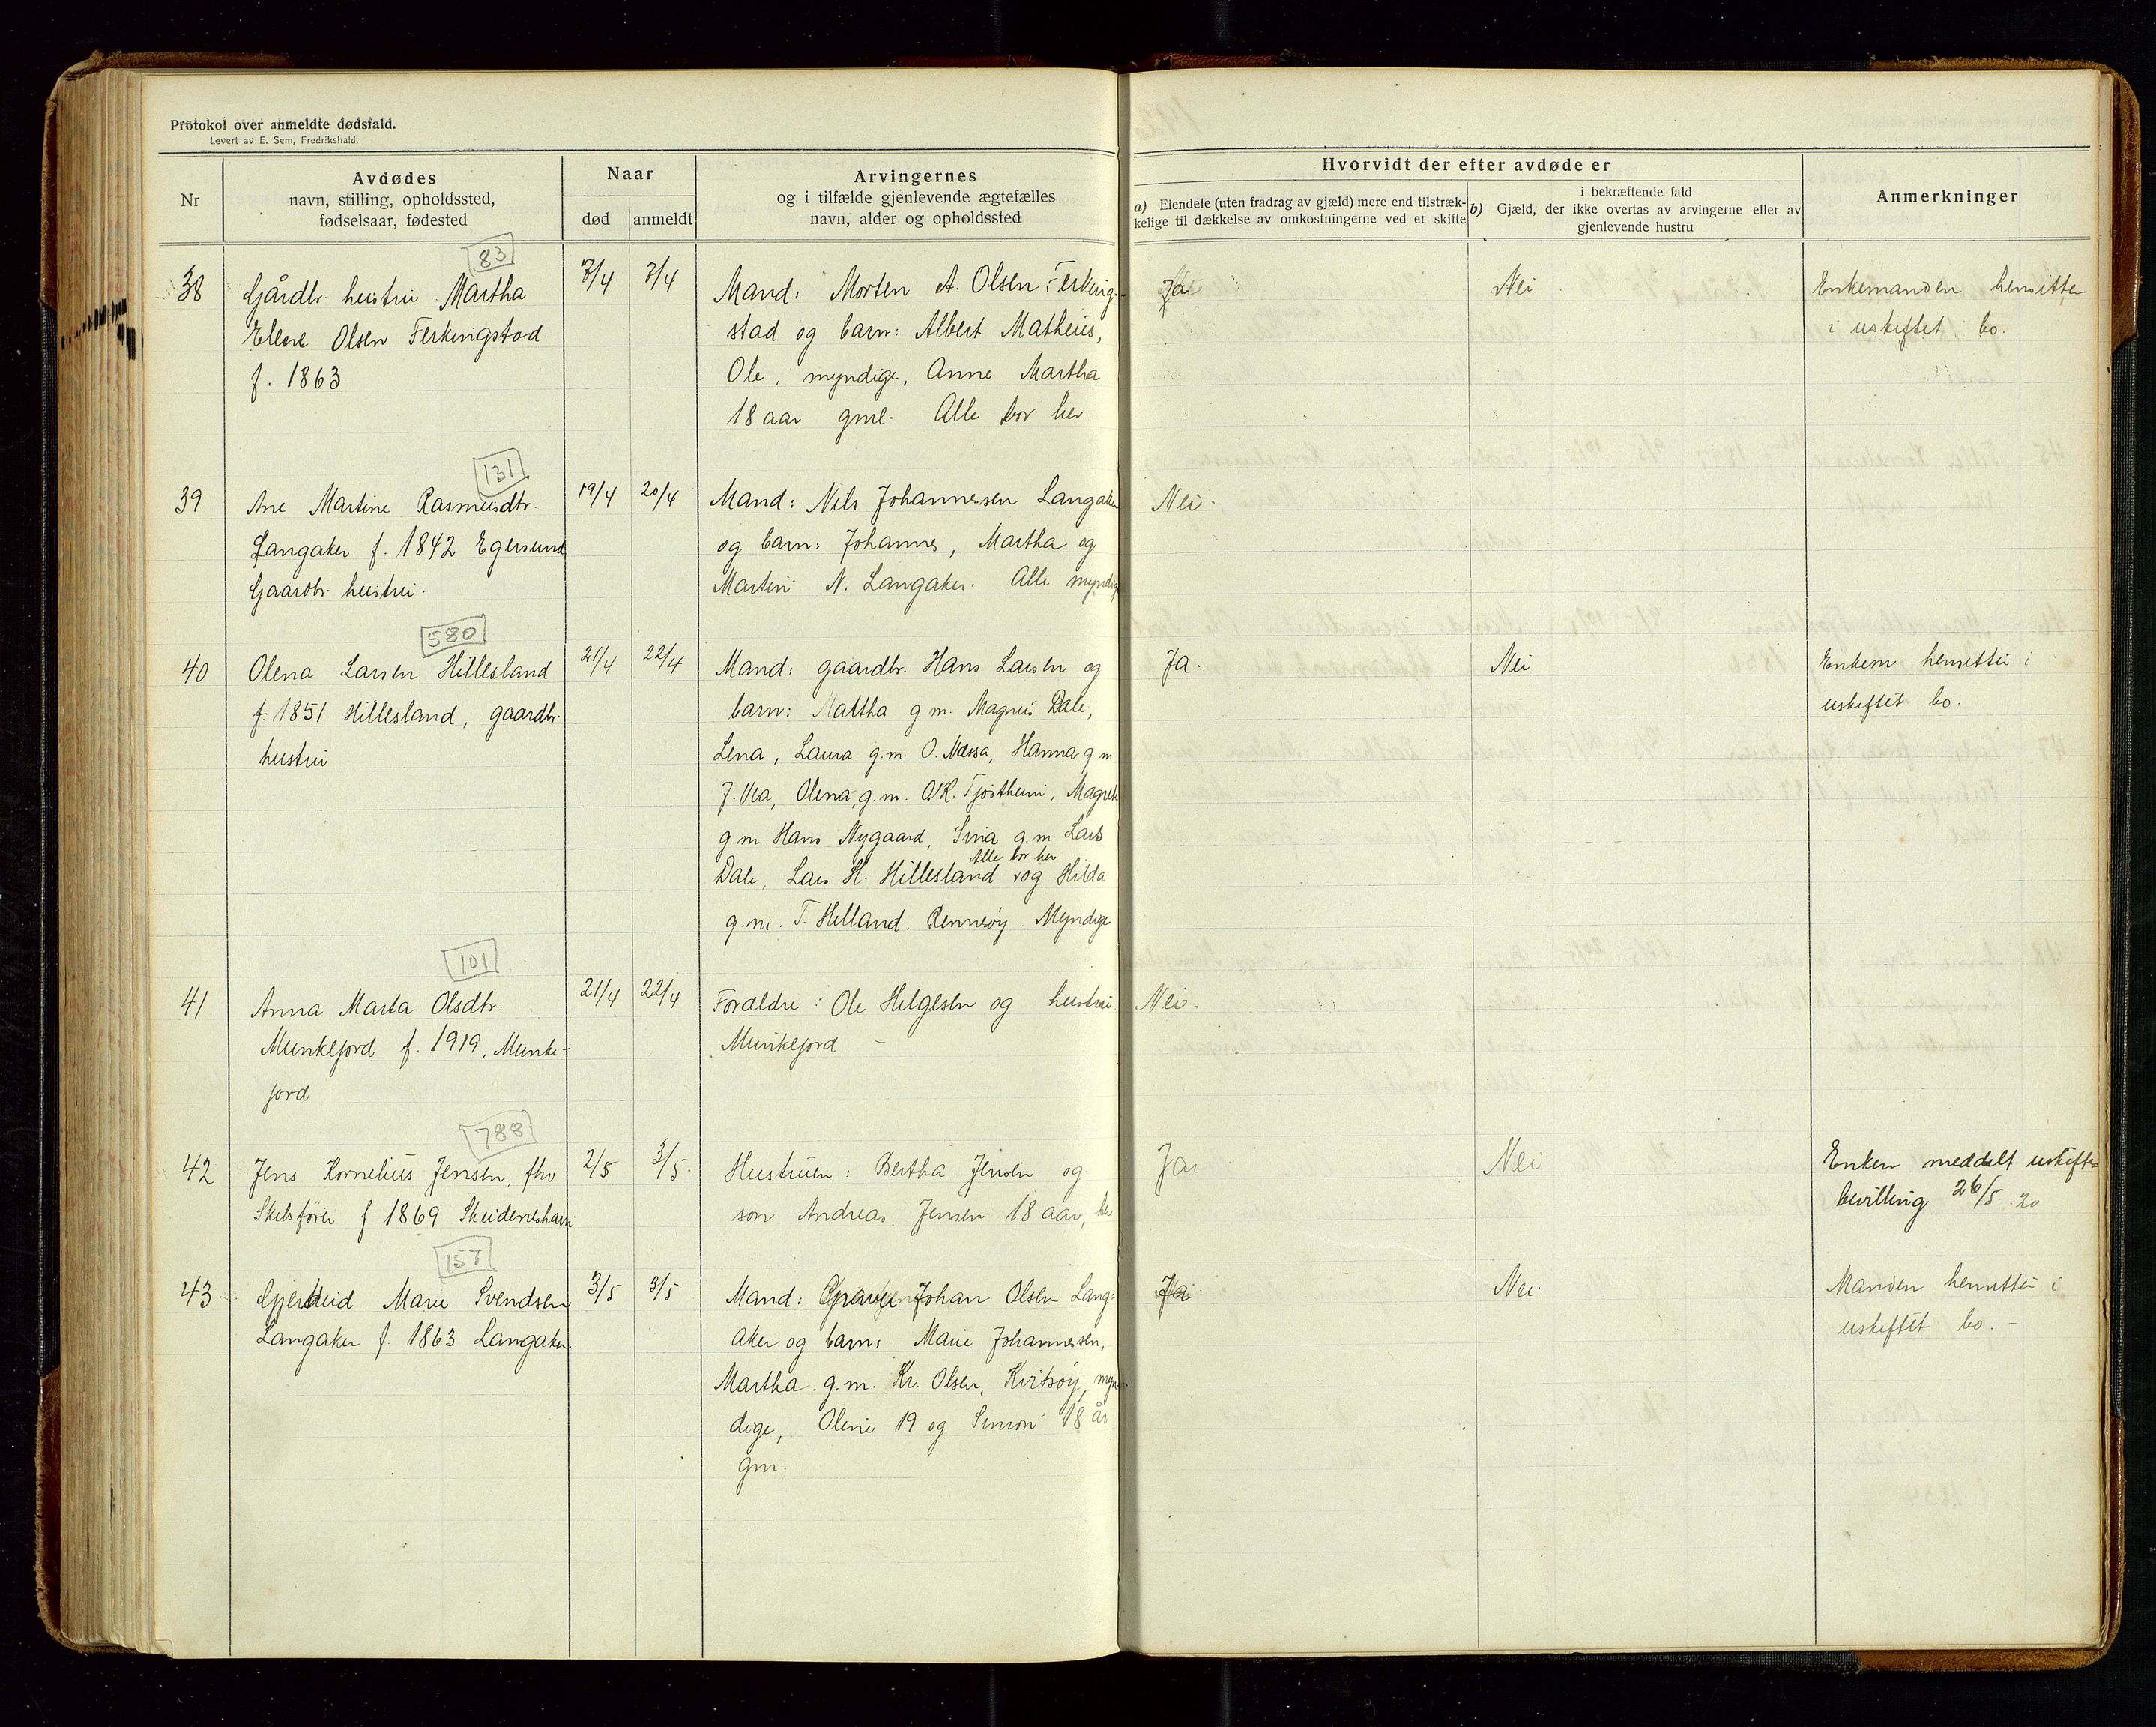 Protokol over anmeldte dødsfald.
Levert av E. Sem, Fredrikshald.
Nr
Avdødes
navn, stilling, opholdssted,
fødselsaar, fødested
Naar
død
anmeldt
Arvingernes
og i tilfælde gjenlevende ægtefælles
navn, alder og opholdssted
Hvorvidt der efter avdøde er
a) Eiendele (uten fradrag av gjæld) mere end tilstræk-
kelige til dækkelse av omkostningerne ved et skifte
i bekræftende fald
b) Gjæld, der ikke overtas av arvingerne eller av
gjenlevende hustru
Anmerkninger
83
38
Gårdbr. hustru Martha
Elene Olsen Ferkingstad
f. 1863
7/4
7/4
Mand: Morten A. Olsen Ferking-
stad og barn: Albert Matheus,
Ole, myndige, Anne Martha
18 aar gml. Alle bor her
Ja
Nei
Enkemanden hensitte
i uskiftet bo.
131
39
Ane Martine Rasmusdtr.
Langaker f. 1842 Egersund
Gaardbr. hustru.
19/4
20/4
Mand: Nils Johannessen Langaker
og barn: Johannes, Martha og
Martin N. Langaker. Alle myndig
Nei.
580
40
Olena Larsen Hillesland
f. 1851 Hillesland, gaardbr.
hustru
21/4
22/4
Mand: gaardbr. Hans Larsen og
barn: Maltha g.m. Magnus Dale,
Lena, Laura g.m. O. Næssa, Hanna g.m
J. Vea, Olena, g.m. O.K. Tjøstheim, Magret
g.m. Hans Nygaard, Sina g.m. Lars
Alle bor her
Dale, Lars H. Hillesland og Hilda
g.m. T. Helland. Rennesøy. Myndige
Ja.
Nei
Enkem hensitter i
uskiftet bo.
101
41
Anna Marta Olsdtr.
Munkejord f. 1919, Munke-
jord
21/4
22/4
Forældre: Ole Helgesen og hustru
Munkejord -
Nei.
788
42
Jens Kornelius Jensen, fhv
Skibsfører f 1869 Skudeneshavn
2/5
3/5.
Hustruen: Bertha Jensen og
søn Andreas Jensen 18 aar, her
Ja
Nei
Enken meddelt uskifte-
bevilling 26/5 20
157
43
Marie Svendsen
Langaker f. 1863 Langaker
3/5
3/5
Mand: Johan Olsen Lang-
aker og barn: Marie Johannessen,
Martha g.m. Kr. Olsen, Kvitsøy, myn-
dige, Oline 19 og Simon 18 år
gm.
Ja
Nei
Manden hensitter i
uskiftet bo. -